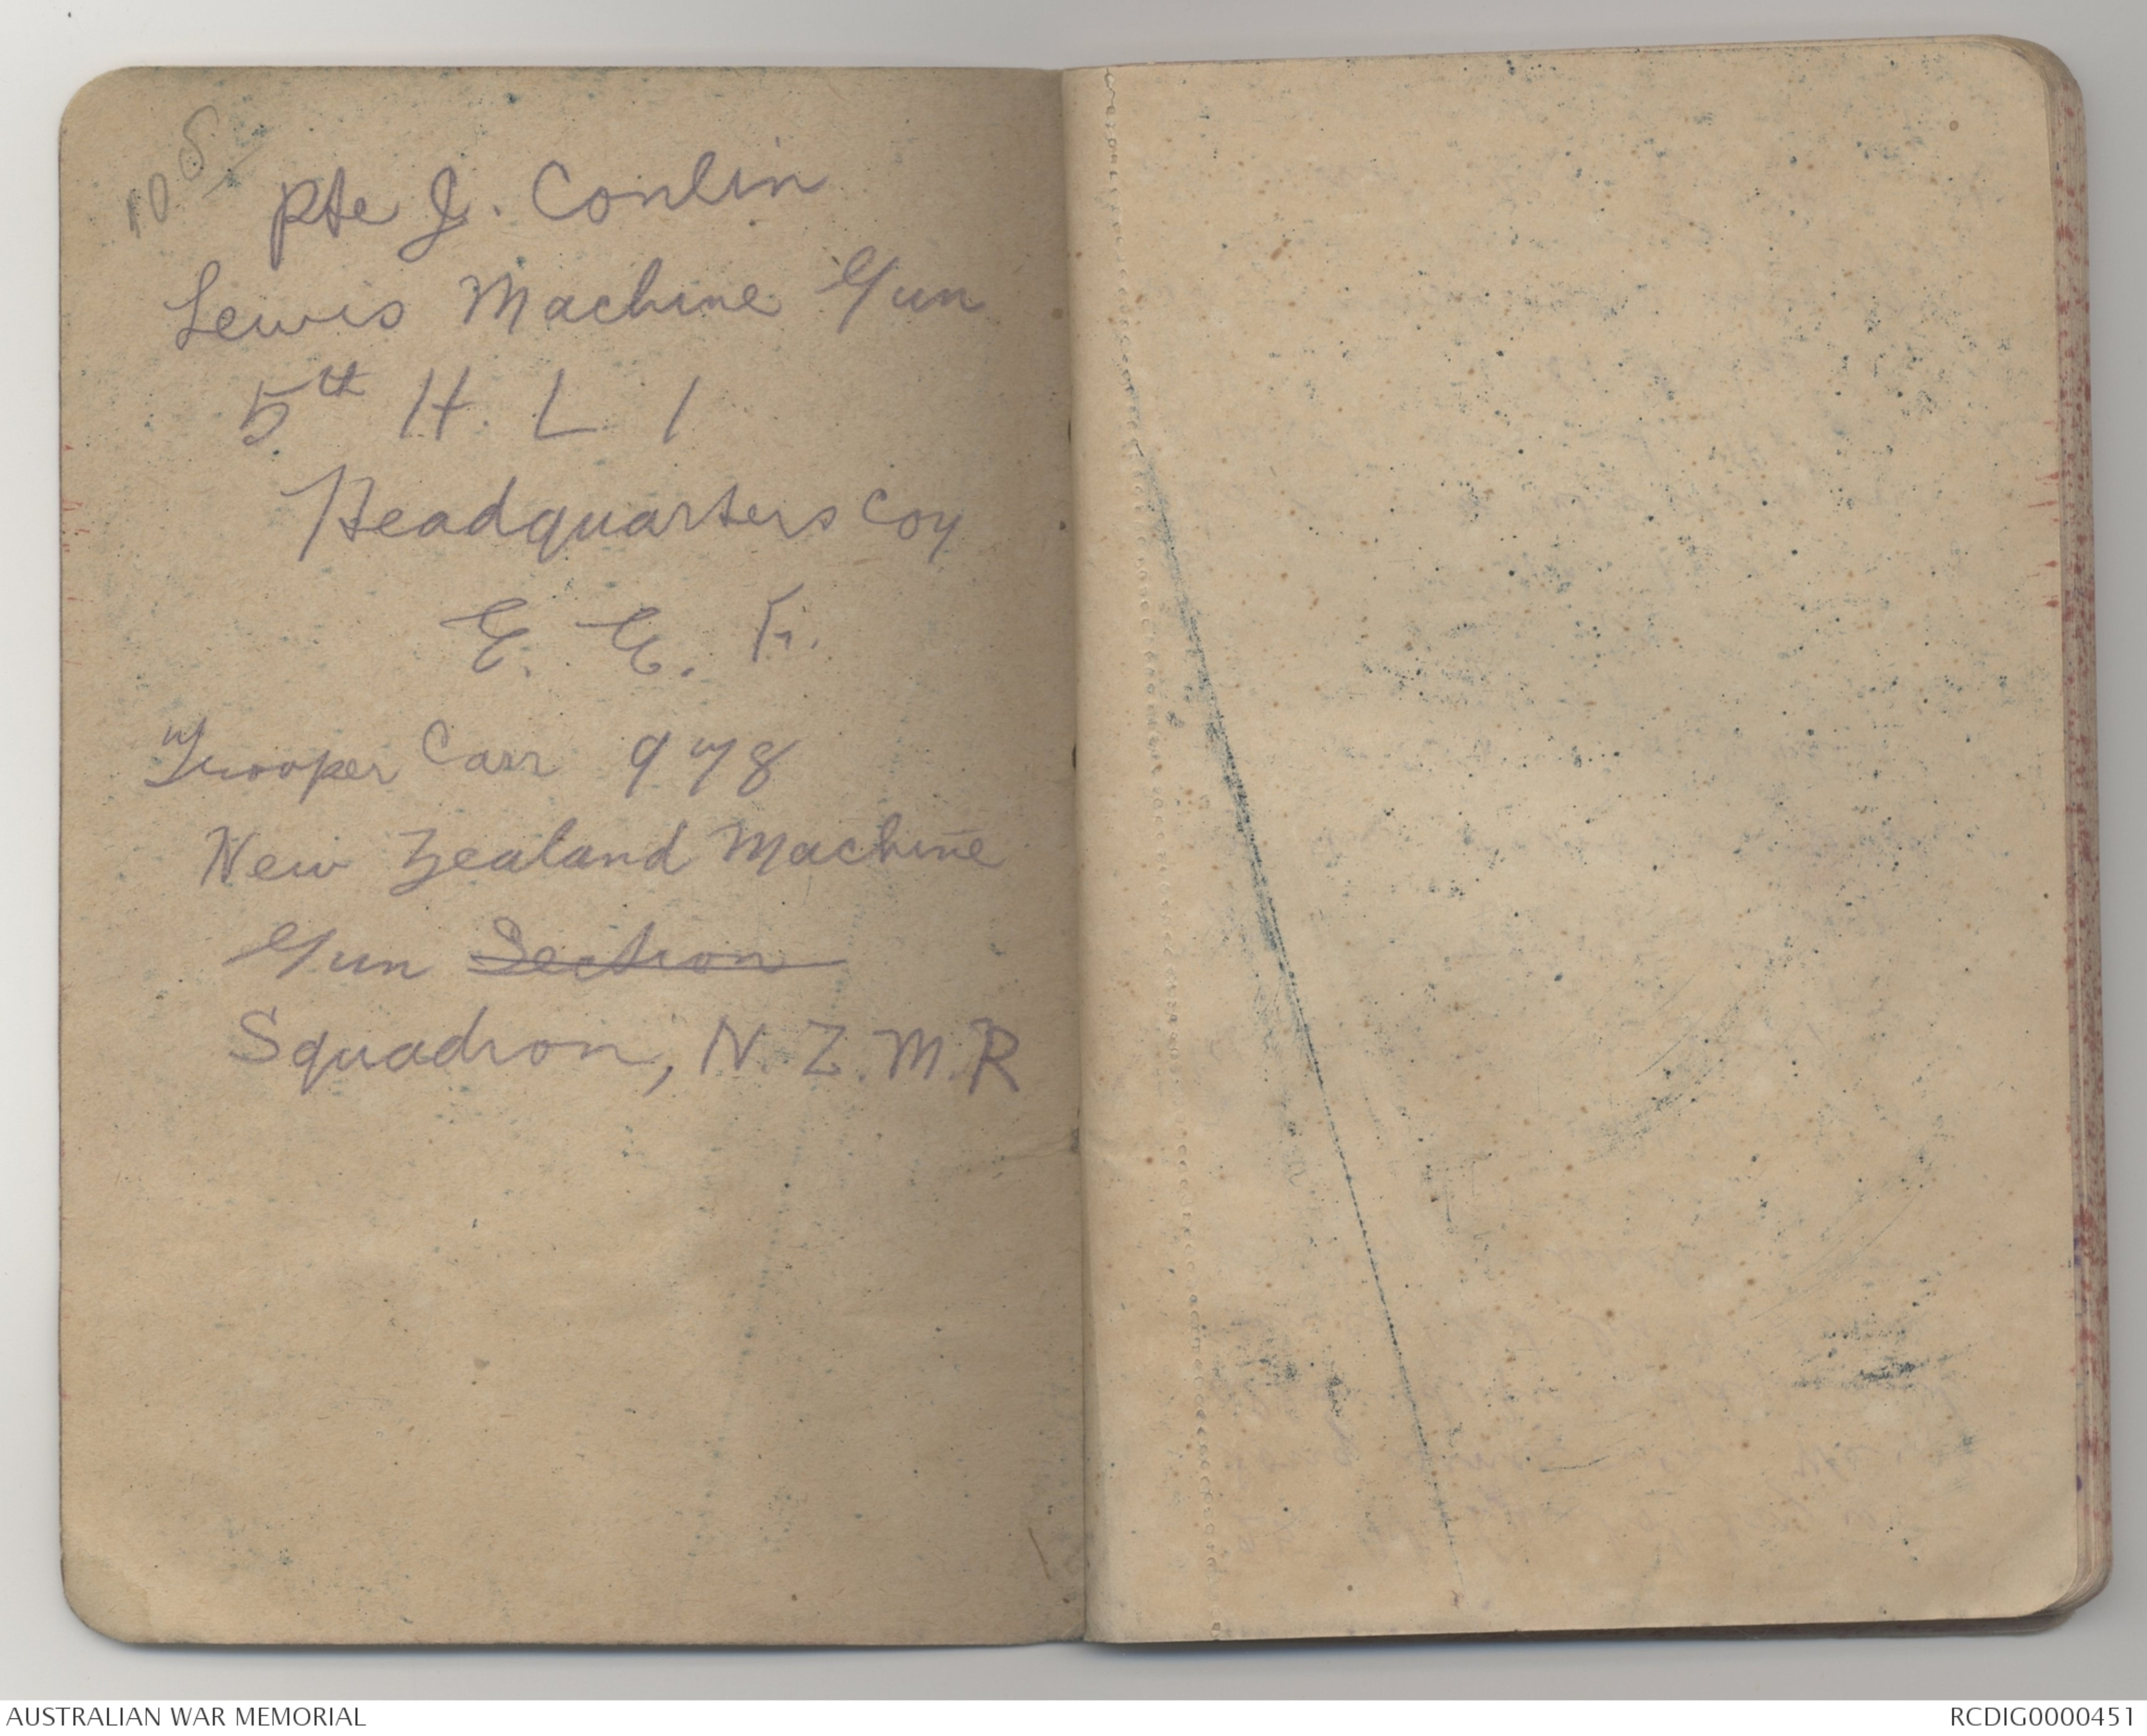 10 S/-
Pte J. Conlin
Lewis Machine Gun
5th H. L. I
Headquarters Coy
E. E. F.
Trooper Carr 978
New Zealand Machine
Gun Section
Squadron, N. Z. M. R
AUSTRALIAN WAR MEMORIAL
RCDIG0000451